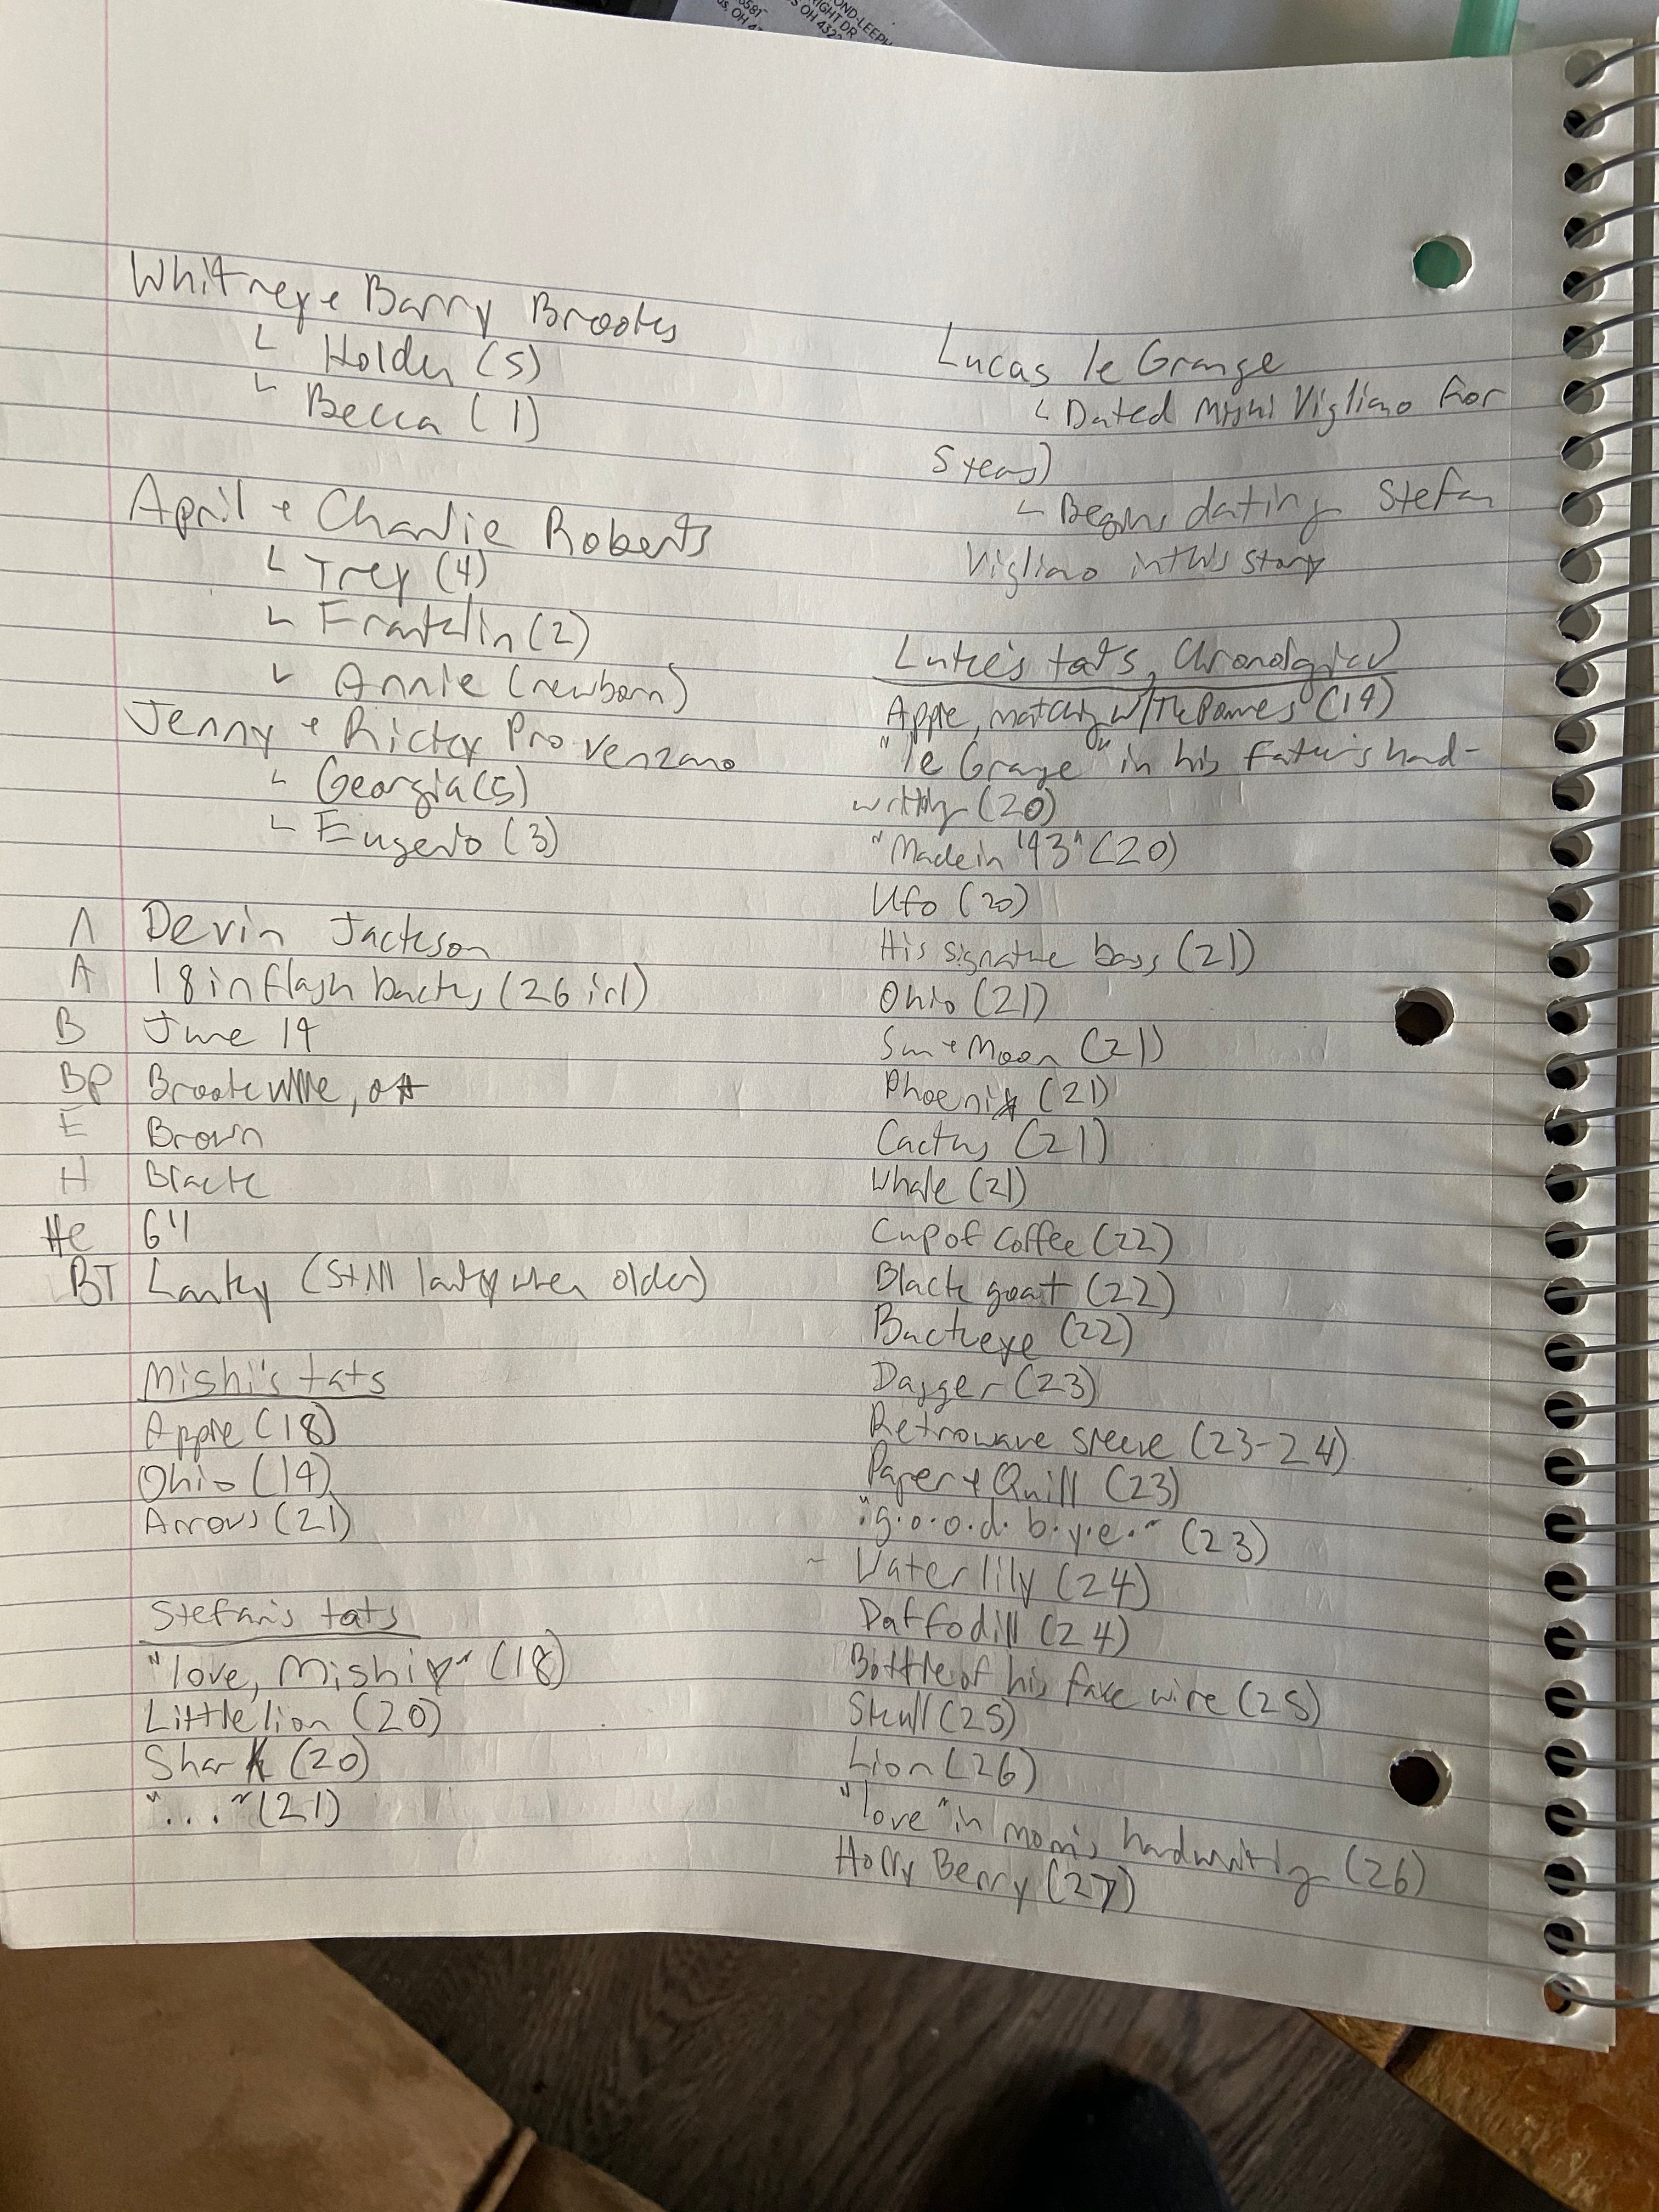 OND-LEEPH
IGHT DR
S OH 4322
6581
us, OH 43
Whitney + Barry Brooks
└ Holden (5)
└ Becca (1)
April + Charlie Roberts
└ Trey (4)
└ Franklin (2)
└ Annie (newborn)
Jenny + Ricky Provenzano
└ Georgia (5)
└ Eugenio (3)
Λ Devin Jackson
A 18 in flashbacks (26 irl)
B June 19
BP Brookville, OH
E Brown
H Black
He 6'1
BT Lanky (still lanky when older)
Mishi's tats
Apple (18)
Ohio (19)
Arrows (21)
Stefan's tats
"love, Mishi♡" (18)
Little lion (20)
Shark (20)
"..." (21)
Lucas le Grange
└ Dated Mishi Vigliano for
5 years)
└ Begins dating Stefan
Vigliano in this story
Luke's tats, Chronological
Apple, matching w/ The Pomes (19)
"le Grange" in his father's hand-
writing (20)
"Made in '93" (20)
Ufo (20)
His signature bass (21)
Ohio (21)
Sun + Moon (21)
Phoenix (21)
Cactus (21)
Whale (21)
Cup of coffee (22)
Black goat (22)
Buckeye (22)
Dagger (23)
Retrowave sleeve (23-24)
Paper + Quill (23)
".g.o.o.d. b.y.e." (23)
~ Water lily (24)
Daffodill (24)
Bottle of his fake wine (25)
Skull (25)
Lion (26)
"love" in mom's handwriting (26)
Holly Berry (27)